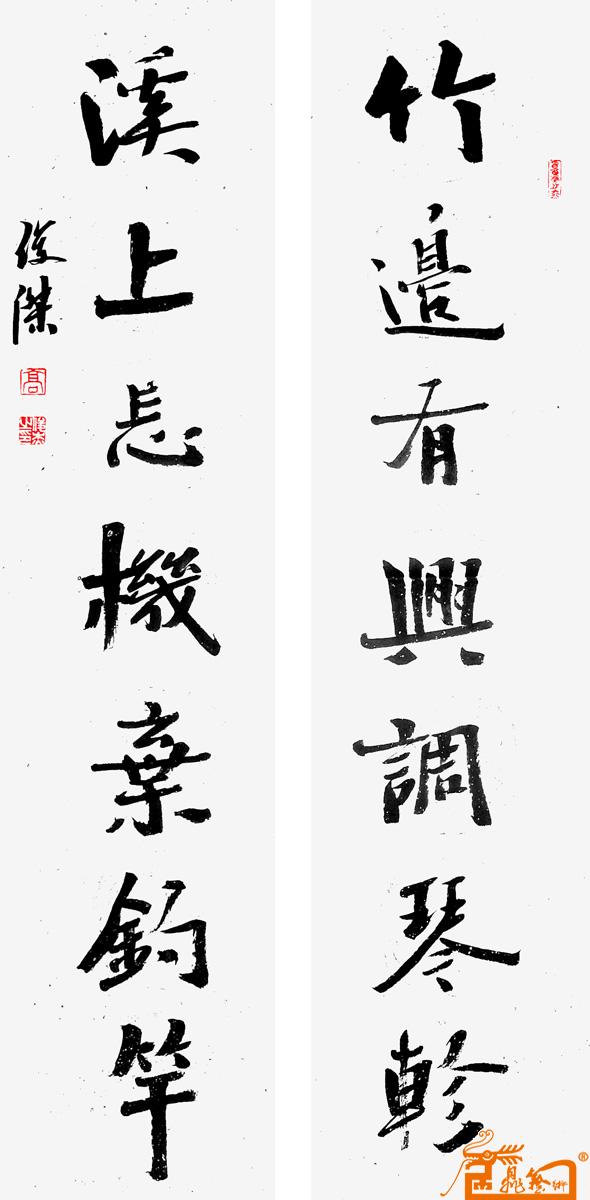 竹邊有興調琴軫
溪上忘機棄釣竿
俊傑
高